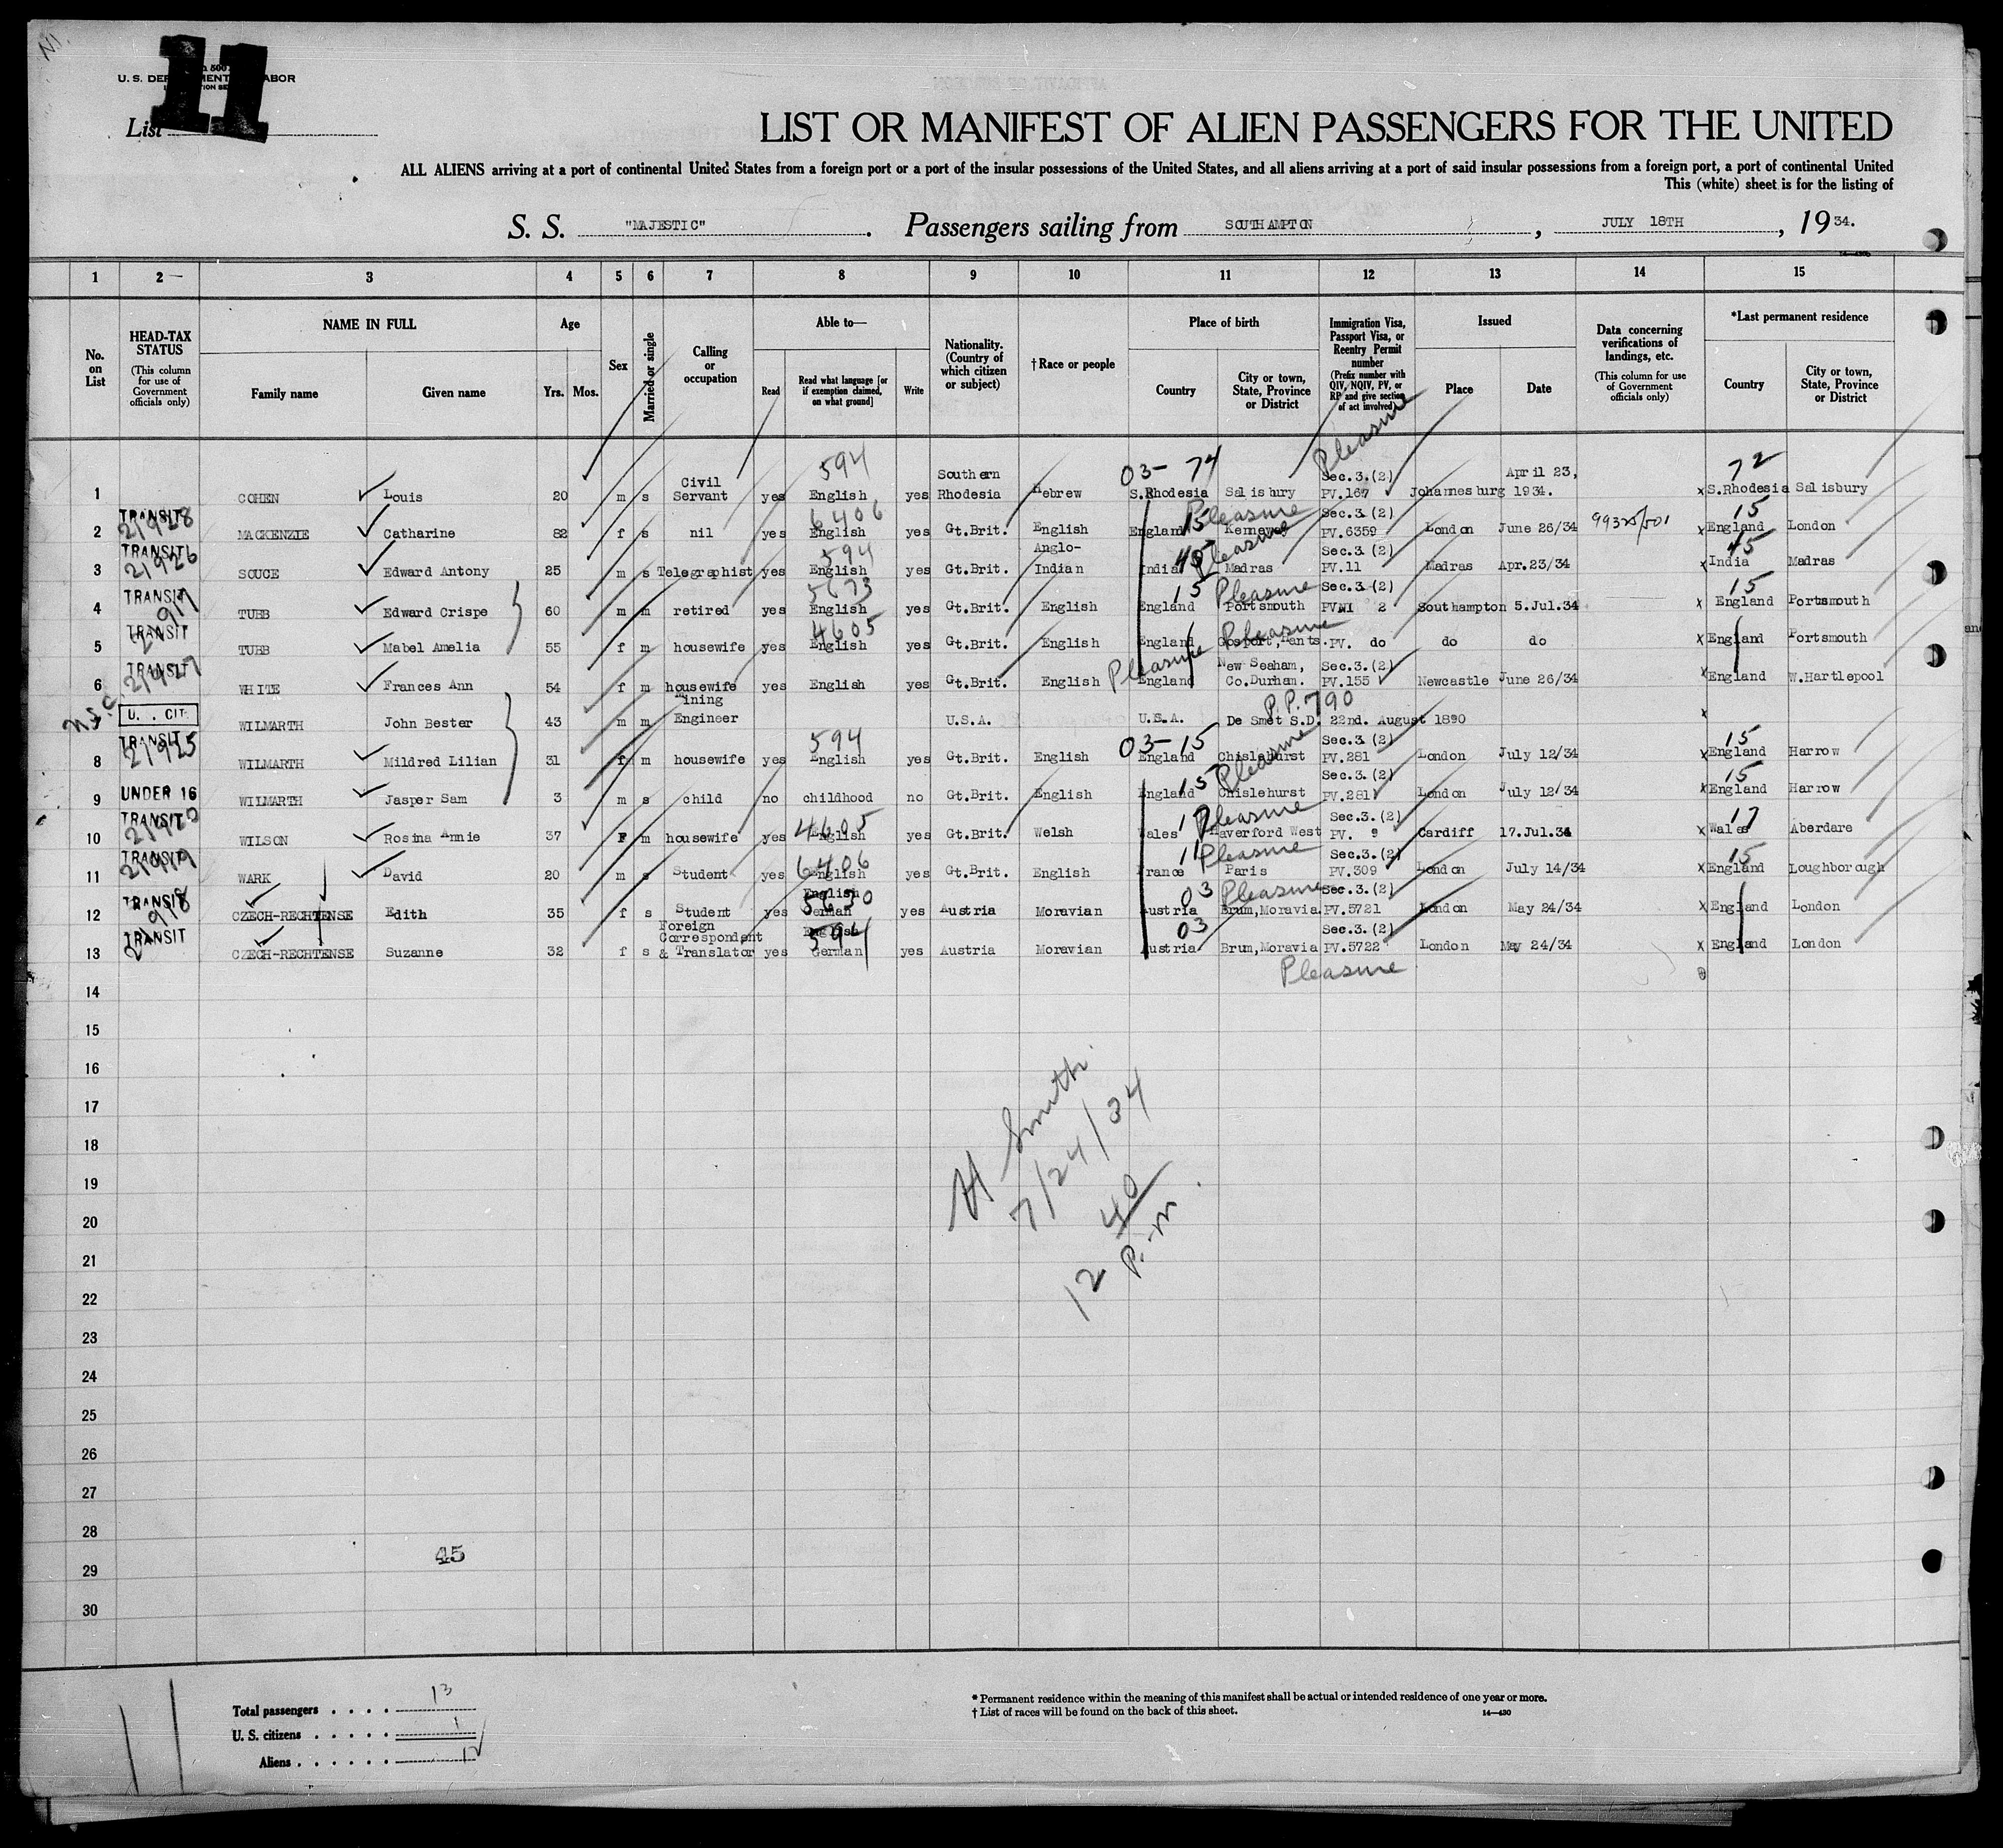 11
U. S. DEPARTMENT OF LABOR
List
LIST OR MANIFEST OF ALIEN PASSENGERS FOR THE UNITED
ALL ALIENS arriving at a port of continental United States from a foreign port or a port of the insular possessions of the United States, and all aliens arriving at a port of said insular possessions from a foreign port, a port of continental United
This (white) sheet is for the listing of
S. S. "MAJESTIC". Passengers sailing from SOUTHAMPTON, JULY 18TH, 1934.
1 2 3 4 5 6 7 8 9 10 11 12 13 14 15
No. on List
HEAD-TAX STATUS (This column for use of Government officials only)
NAME IN FULL Family name Given name
Age Yrs. Mos.
Sex
Married or single
Calling or occupation
Able to— Read Read what language [or if exemption claimed, on what ground] Write
Nationality. (Country of which citizen or subject)
† Race or people
Place of birth Country City or town, State, Province or District
Immigration Visa, Passport Visa, or Reentry Permit number (Prefix number with QIV, NQIV, PV, or RP and give section of act involved)
Issued Place Date
Data concerning verifications of landings, etc. (This column for use of Government officials only)
*Last permanent residence Country City or town, State, Province or District
1 COHEN Louis 20 m s Civil Servant yes English 594 yes Southern Rhodesia Hebrew 03- 74 S.Rhodesia Salisbury Pleasure Sec.3.(2) PV.167 Johannesburg April 23, 1934. x 72 S.Rhodesia Salisbury
2 TRANSIT 21928 MACKENZIE Catharine 82 f s nil yes English 6406 yes Gt.Brit. English England 15 Pleasure Sec.3.(2) PV.6359 London June 26/34 99325/501 x 15 England London
3 TRANSIT 21926 SOUCE Edward Antony 25 m s Telegraphist yes English 594 yes Gt.Brit. Anglo-Indian India 45 Madras Pleasure Sec.3.(2) PV.11 Madras Apr.23/34 x 45 India Madras
4 TRANSIT TUBB Edward Crispe 60 m m retired yes English 5673 yes Gt.Brit. English England 15 Portsmouth Pleasure Sec.3.(2) PV 2 Southampton 5.Jul.34 x 15 England Portsmouth
5 TRANSIT TUBB Mabel Amelia 55 f m housewife yes English 4605 yes Gt.Brit. English England Gosport, Hants. Pleasure PV. do do do x England Portsmouth
6 TRANSIT 21927 WHITE Frances Ann 54 f m housewife yes English yes Gt.Brit. English Pleasure England New Seaham, Co.Durham. Sec.3.(2) PV.155 Newcastle June 26/34 x England W.Hartlepool
U. . CIT. WILMARTH John Bester 43 m m Mining Engineer U.S.A. U.S.A. De Smet S.D. 22nd. August 1890 P.P. 790 x
8 TRANSIT 21925 WILMARTH Mildred Lilian 31 f m housewife yes English 594 yes Gt.Brit. English 03-15 England Chislehurst Pleasure Sec.3.(2) PV.281 London July 12/34 x 15 England Harrow
9 UNDER 16 WILMARTH Jasper Sam 3 m s child no childhood no Gt.Brit. English England 15 Chislehurst Sec.3.(2) PV.281 London July 12/34 x 15 England Harrow
10 TRANSIT WILSON Rosina Annie 37 F m housewife yes English 4605 yes Gt.Brit. Welsh Wales 17 Haverford West Pleasure Sec.3.(2) PV. 9 Cardiff 17.Jul.34 x 17 Wales Aberdare
11 TRANSIT 21919 WARK David 20 m s Student yes English 6406 yes Gt.Brit. English France 11 Paris Pleasure Sec.3.(2) PV.309 London July 14/34 x 15 England Loughborough
12 TRANSIT CZECH-RECHTENSE Edith 35 f s Student yes English German 5630 yes Austria Moravian Austria 03 Brum,Moravia. Pleasure Sec.3.(2) PV.5721 London May 24/34 x England London
13 TRANSIT CZECH-RECHTENSE Suzanne 32 f s Foreign Correspondent & Translator yes English German 594 yes Austria Moravian Austria 03 Brum,Moravia Sec.3.(2) PV.5722 London May 24/34 x England London
Pleasure
14
15
16
17
18
19
20
21
22
23
24
25
26
27
28
29
30
H Smith
7/24/34
12 40
P.m.
45
Total passengers . . . . 13
U. S. citizens . . . . . 1
Aliens . . . . . . 12
* Permanent residence within the meaning of this manifest shall be actual or intended residence of one year or more.
† List of races will be found on the back of this sheet. 14—430